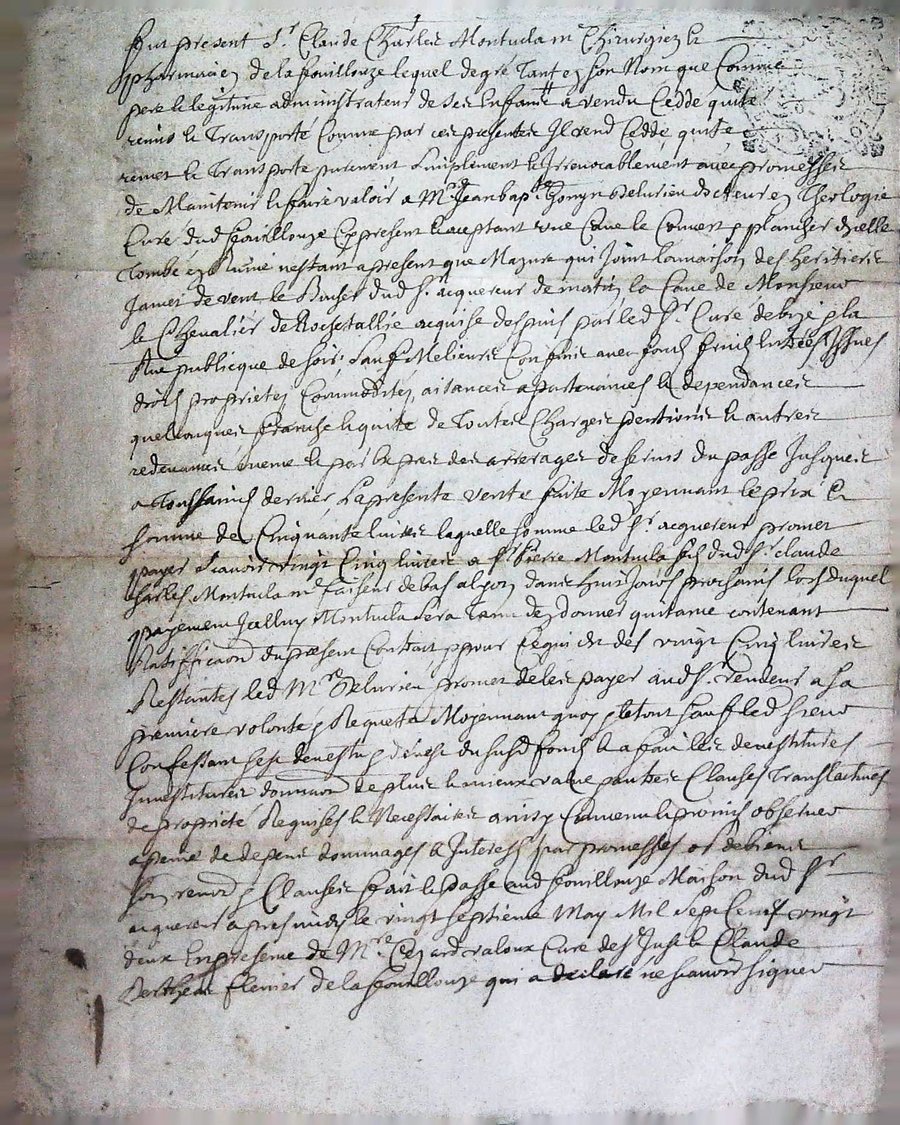 fut present Sr Claude Charles Montucla me Chirurgien &
pharmacien de la fouillouze lequel de gré Tant en son Nom que Comme
pere & legitime administrateur de ses Enfants a vendu Cedde quite
remis & Transporté Comme par ces presentes Il vend Cedde quite
remet & Transporte purement simplement & Irrevocablement avec promesse
de Maintenir & faire valoir a Mre Jean bapte docteur en Theologie
Curé dud fouillouze Cy present & aceptant une Cave le Couvert & plancher dicelle
Tombé en Ruine nestant apresent que Mazure qui Joint la maison des heritiers
James de vent le Bucher dud Sr acquereur de matin la Cave de Monsieur
le Chevalier de Rochetallié acquise depuis par led Sr Curé de bize & la
Rue publicque de soir, sauf Melieurs Confins avec fond fruits Entrées Issues
droits proprietés Commodités aisances apartenances & dependances
quelconques franche & quite de Toutes Charges pentions & autres
redevances meme & par Exprez des arrerages de servis du passé Jusques
a Toussaincts dernier, La presente vente faite Moyennant le prix &
somme de Cinquante livres laquelle somme led Sr acquereur promet
payer Scavoir vingt Cinq livres a Sr Pierre Montucla fils dud Sr Claude
Charles Montucla me faiseur de bas a Lyon dans huit Jours prochains lors duquel
payement Icelluy Montucla sera Tenu den donner quitance contenant
Ratiffication du present Contrait & pour Ce qui Est des vingt Cinq livres
Restantes led Mre promet de les payer aud Sr vendeur a sa
premiere volonté & Requete Moyennant quoy & le tout sauf led Sieur
Confessant sest devestu & du susd fond & a fait les devestitures
Investitures de plus & mieux value pautres Clauses Translatives
de proprieté Requises & Necessaires ainsy Convenu & promis observer
a peine de depens dommages & Interests par promesses de biens
& Clauses fait & Passé aud fouillouze Maison dud Sr
acquereur apres midy le vingt septieme May Mil Sept Cents vingt
deux En presence de Mre valoux Curé de St Just & Claude
de la fouillouze qui a declaré ne scavoir signer